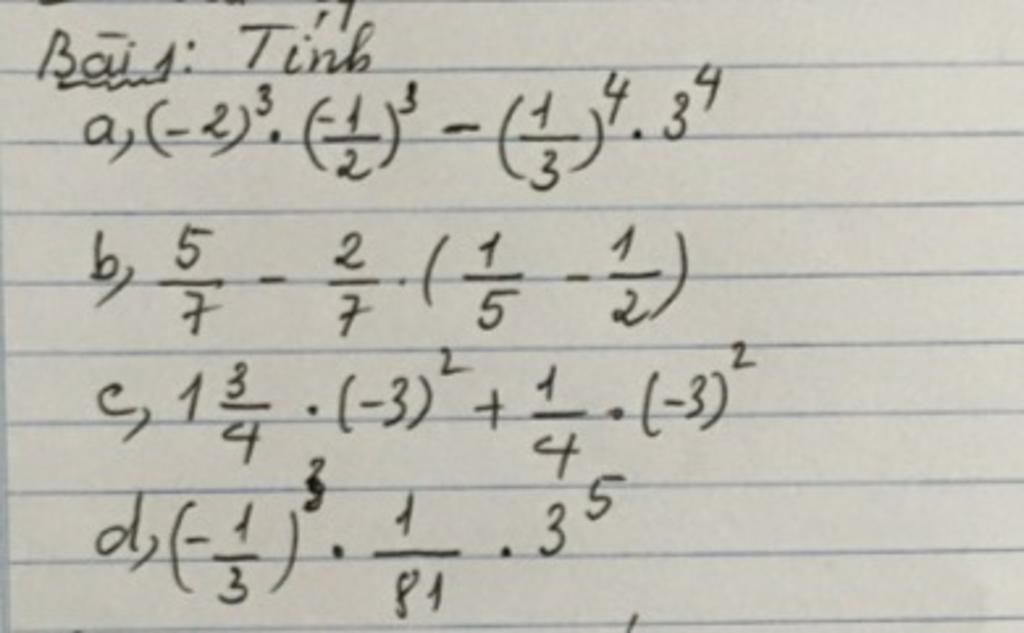 Bài 1: Tính
a, (-2)³ · (-1/2)³ - (1/3)⁴ · 3⁴
b, 5/7 - 2/7 · (1/5 - 1/2)
c, 1 3/4 · (-3)² + 1/4 · (-3)²
d, (-1/3)³ · 1/81 · 3⁵